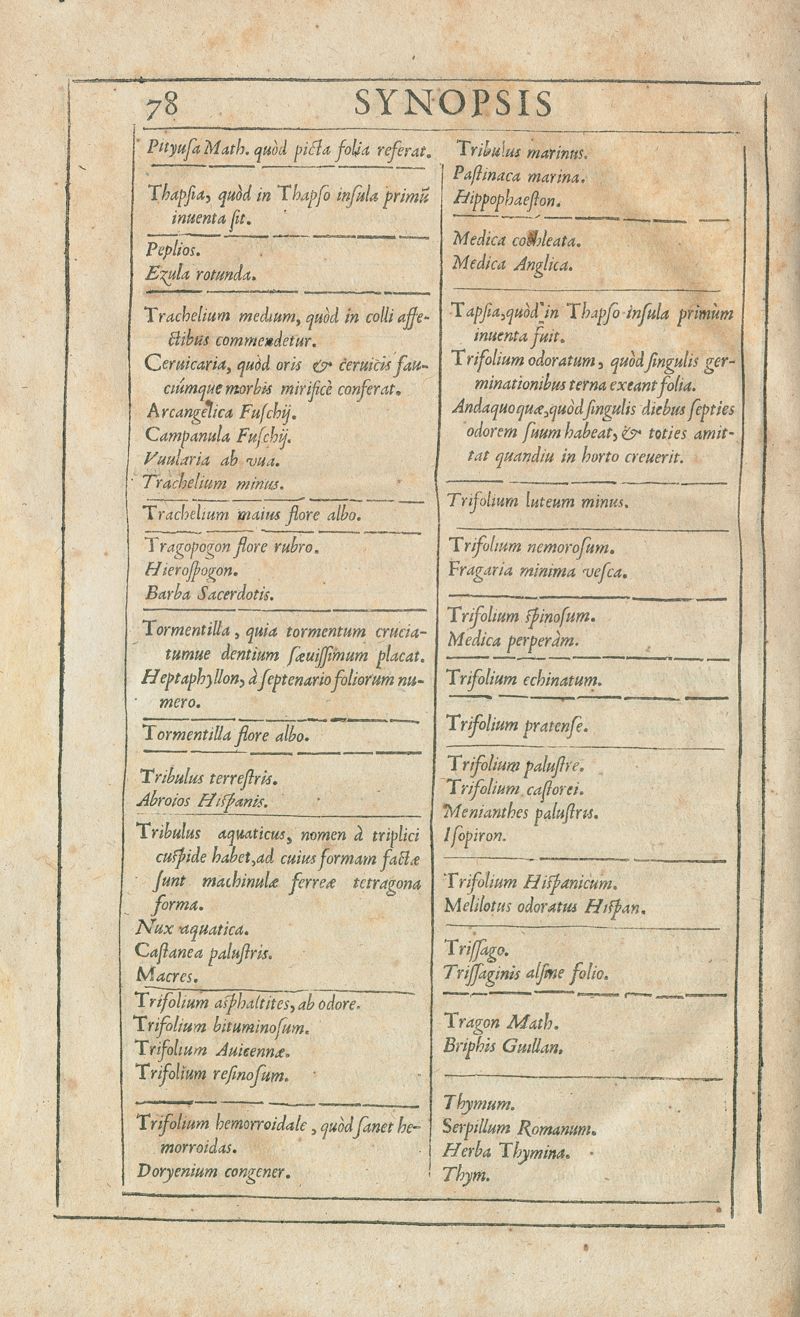 78 SYNOPSIS
Pityuſa Math. quòd picta folia referat.
Thapſia, quòd in Thapſo inſula primũ
inuenta ſit.
Peplios.
Ezula rotunda.
Trachelium medium, quòd in colli affe-
ctibus commendetur.
Ceruicaria, quòd oris & ceruicis fau-
ciúmque morbis mirificè conferat.
Arcangelica Fuſchij.
Campanula Fuſchij.
Vuularia ab vua.
Trachelium minus.
Trachelium maius flore albo.
Tragopogon flore rubro.
Hieroſpogon.
Barba Sacerdotis.
Tormentilla, quia tormentum crucia-
tumue dentium ſæuiſſimum placat.
Heptaphyllon, à ſeptenario foliorum nu-
mero.
Tormentilla flore albo.
Tribulus terreſtris.
Abroios Hiſpanis.
Tribulus aquaticus, nomen à triplici
cuſpide habet, ad cuius formam factæ
ſunt machinulæ ferreæ tetragona
forma.
Nux aquatica.
Caſtanea paluſtris.
Macres.
Trifolium aſphaltites, ab odore.
Trifolium bituminoſum.
Trifolium Auicennæ.
Trifolium reſinoſum.
Trifolium hemorroidale, quòd ſanet he-
morroidas.
Doryenium congener.
Tribulus marinus.
Paſtinaca marina.
Hippophaeſton.
Medica cochleata.
Medica Anglica.
Tapſia, quòd in Thapſo inſula primùm
inuenta fuit.
Trifolium odoratum, quòd ſingulis ger-
minationibus terna exeant folia.
Andaquoquæ, quòd ſingulis diebus ſepties
odorem ſuum habeat, & toties amit-
tat quandiu in horto creuerit.
Trifolium luteum minus.
Trifolium nemoroſum.
Fragaria minima veſca.
Trifolium ſpinoſum.
Medica perperàm.
Trifolium echinatum.
Trifolium pratenſe.
Trifolium paluſtre.
Trifolium caſtorei.
Menianthes paluſtris.
Iſopiron.
Trifolium Hiſpanicum.
Melilotus odoratus Hiſpan.
Triſſago.
Triſſaginis alſine folio.
Tragon Math.
Briphis Guillan.
Thymum.
Serpillum Romanum.
Herba Thymina.
Thym.